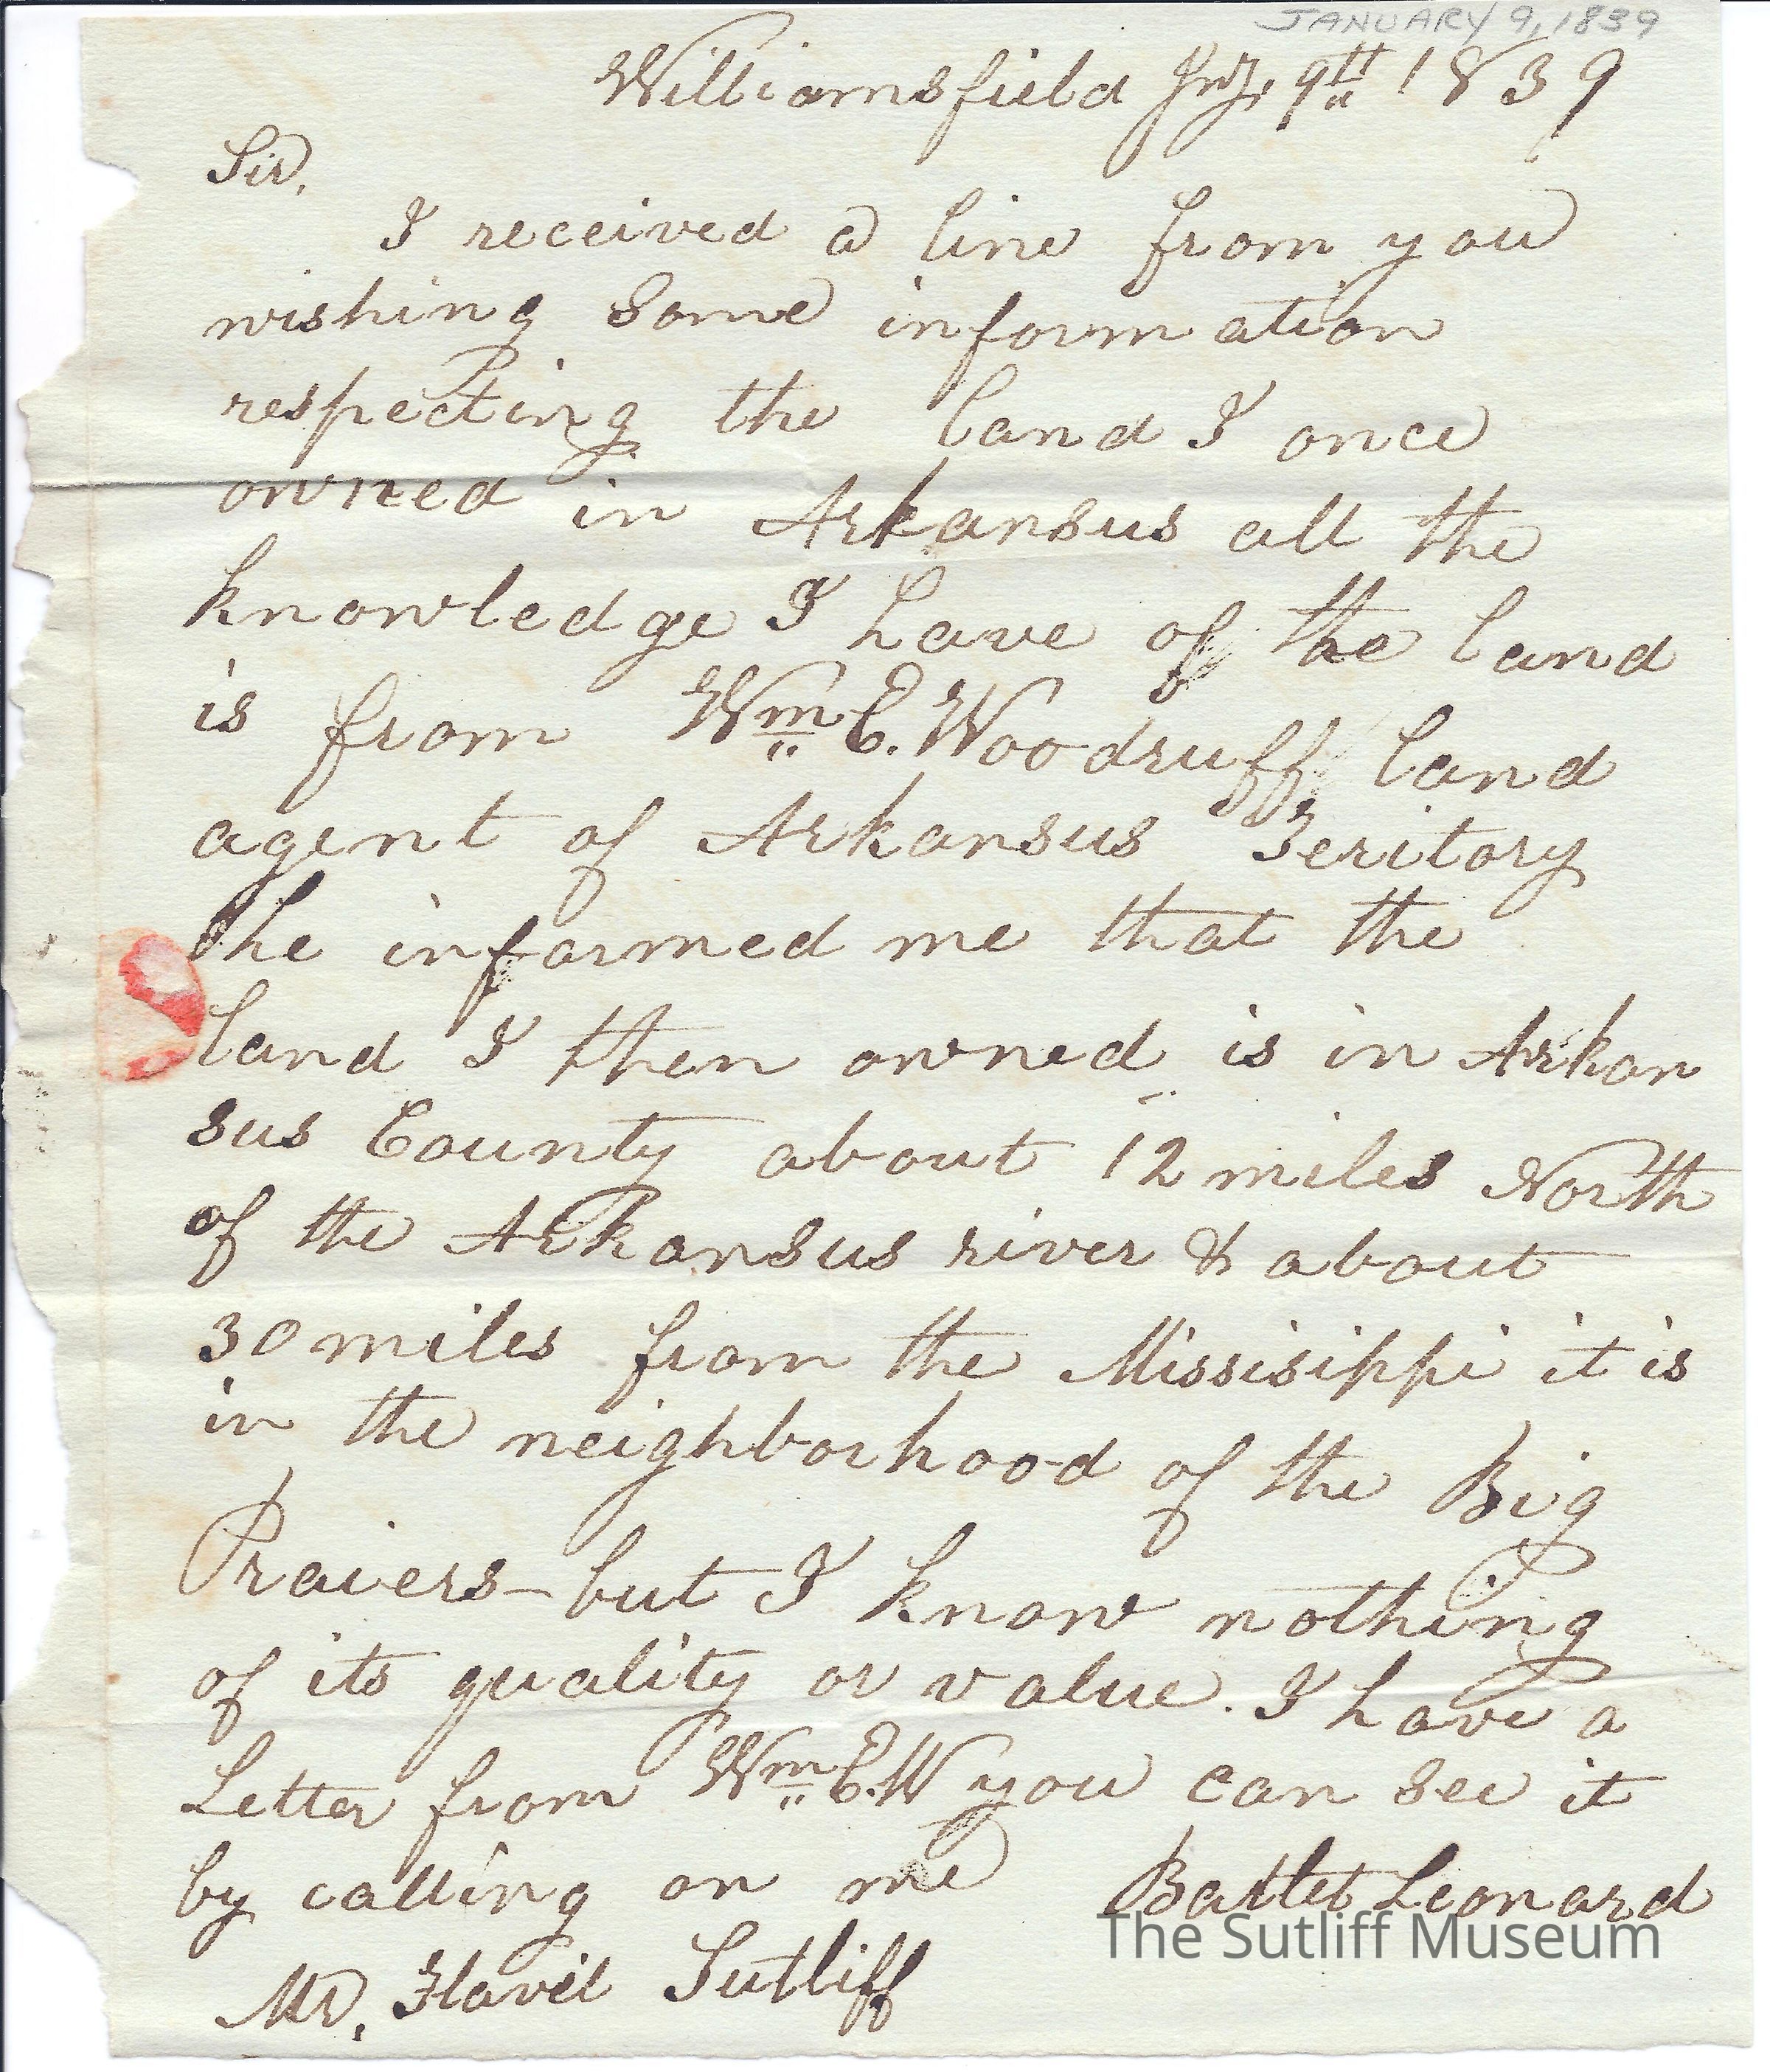 JANUARY 9, 1839
Williamsfield Jny, 9th 1839
Sir,
I received a line from you
wishing some information
respecting the land I once
owned in Arkansus all the
knowledge I have of the land
is from Wm C. Woodruff land
agent of Arkansus Teritory
he informed me that the
land I then owned is in Arkan
sus County about 12 miles North
of the Arkansus river & about
30 miles from the Missisippi it is
in the neighborhood of the Big
Praiers – but I know nothing
of its quality or value. I have a
Letter from Wm C. W you can see it
by calling on me Battet Leonard
The Sutliff Museum
Mr, Flavel Sutliff